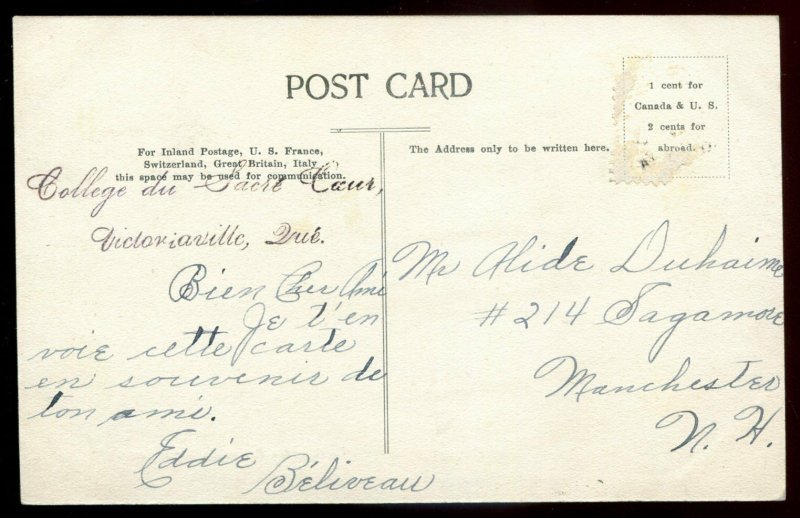 POST CARD
1 cent for
Canada & U. S.
2 cents for
abroad.
For Inland Postage, U. S. France,
Switzerland, Great Britain, Italy
this space may be used for communication.
The Address only to be written here.
College du Sacré Cœur,
Victoriaville, Qué.
Bien Cher Ami
Je t'en
voie cette carte
en souvenir de
ton ami.
Eddie
Béliveau
Mr Alide Duhaime
# 214 Sagamore
Manchester
N. H.